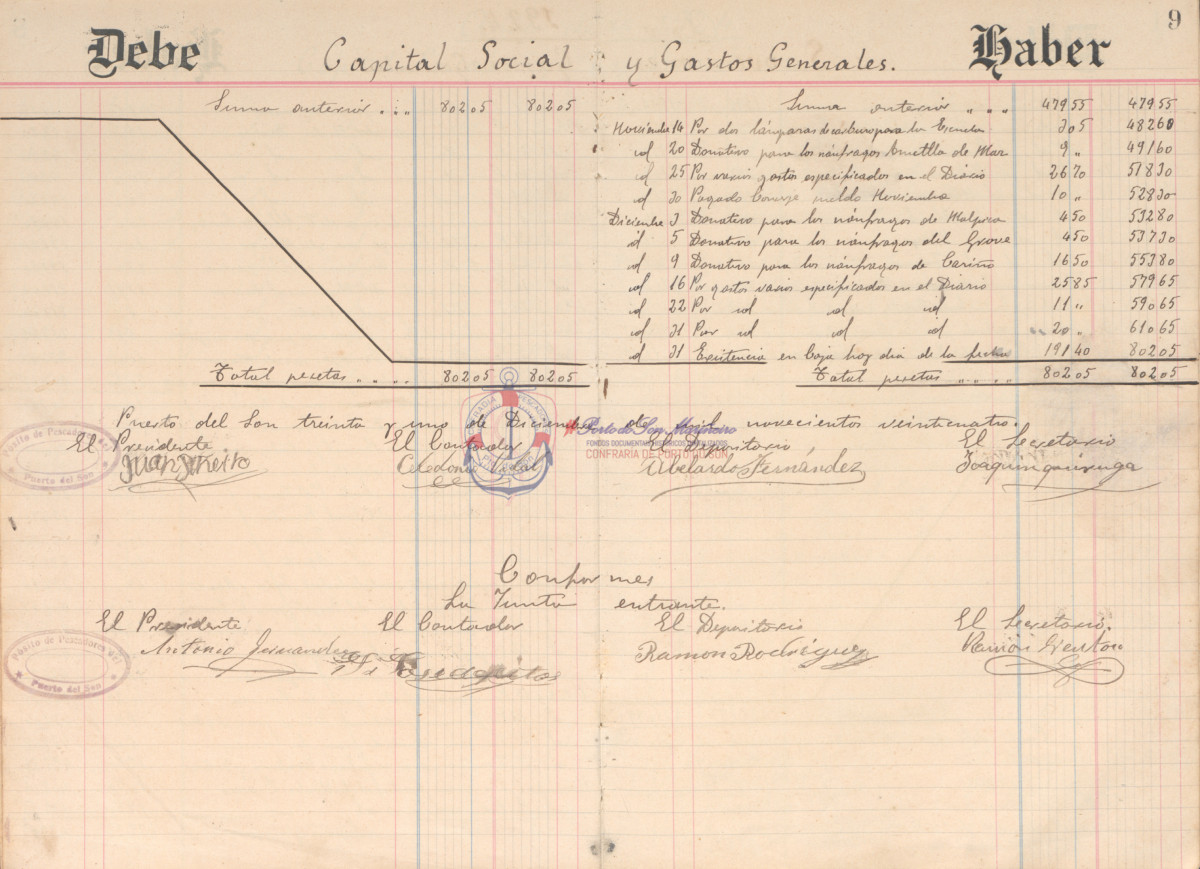 9
Debe Capital Social y Gastos Generales. Haber
Suma anterior . . . 80205 80205
Suma anterior " . . 47955 47955
Noviembre 14 Por dos lámparas de carburo para la Escuela 305 48260
id 20 Donativo para los náufragos Ametlla de Mar 9 " 49160
id 25 Por varios gastos especificados en el Diário 2670 51830
id 30 Pagado Conserje sueldo Noviembre 10 " 52830
Diciembre 3 Donativo para los náufragos de Malpica 450 53280
id 5 Donativo para los náufragos del Grove 450 53730
id 9 Donativo para los náufragos de Cariño 1650 55380
id 16 Por gastos varios especificados en el Diario 2585 57965
id 22 Por id id id 11 " 59065
id 31 Por id id id 20 " 61065
id 31 Existencia en Caja hoy dia de la fecha 19140 80205
Total pesetas " " . . 80205 80205
Total pesetas " " . . 80205 80205
Puerto del Son treinta y uno de Diciembre de mil novecientos veinticuatro.
El Presidente El Contador El Depositario El Secretario
Juan Celedonio Vidal Abelardo Fernández Joaquin
Pósito de Pescadores del
Puerto del Son
CONFRADIA PESCADORES
PORTO DO SON
Porto do Son Mariñeiro
FONDOS DOCUMENTAIS HISTÓRICOS DIXITALIZADOS
CONFRARIA DE PORTO DO SON
Conformes
La Junta entrante.
El Presidente El Contador El Depositario El Secretario.
Antonio Fernandez Ramon Rodríguez Ramón
Pósito de Pescadores del
Puerto del Son